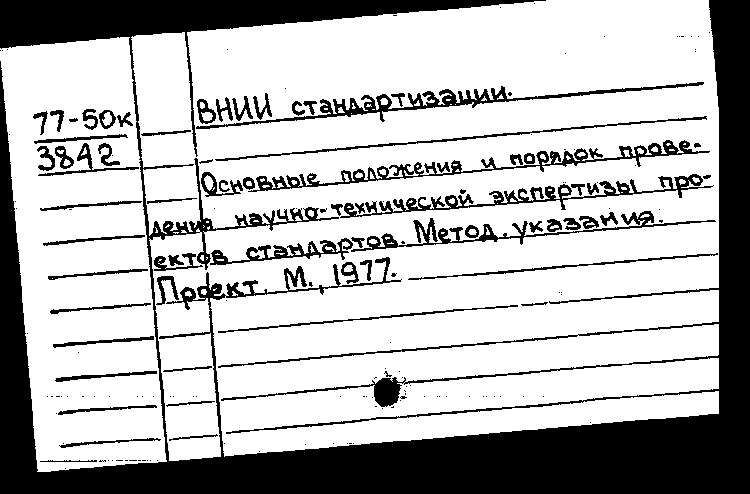 77-50к
3842
ВНИИ стандартизации.
Основные положения и порядок прове-
дения научно-технической экспертизы про-
ектов стандартов. Метод. указания.
Проект. М., 1977.